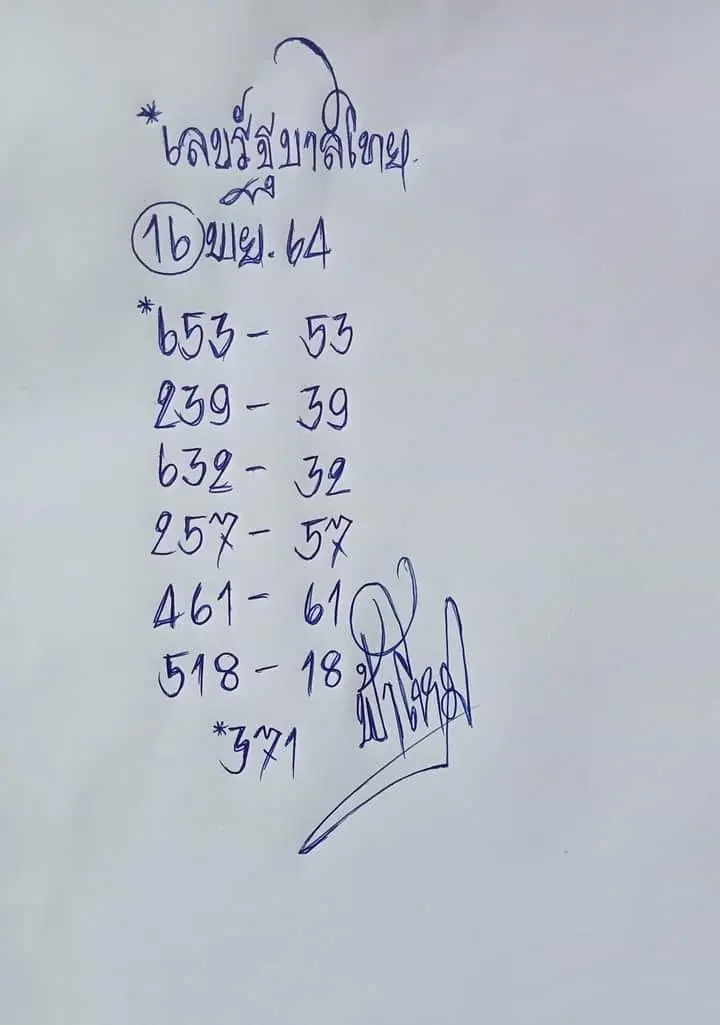 *เลขรัฐบาลไทย.
16 พ.ย. 64
*653 - 53
239 - 39
632 - 32
257 - 57
461 - 61
518 - 18
*371